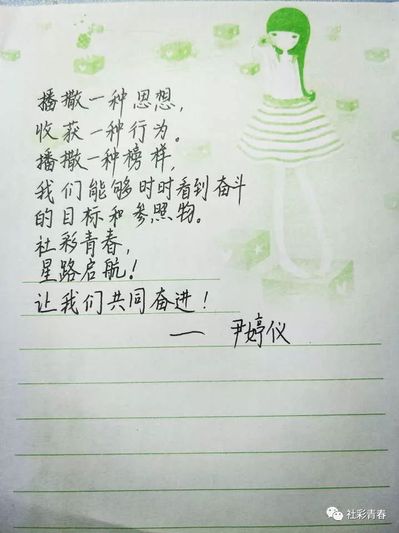 播撒一种思想,
收获一种行为。
播撒一种榜样,
我们能够时时看到奋斗
的目标和参照物。
社彩青春,
星路启航!
让我们共同奋进!
— 尹婷仪
社彩青春